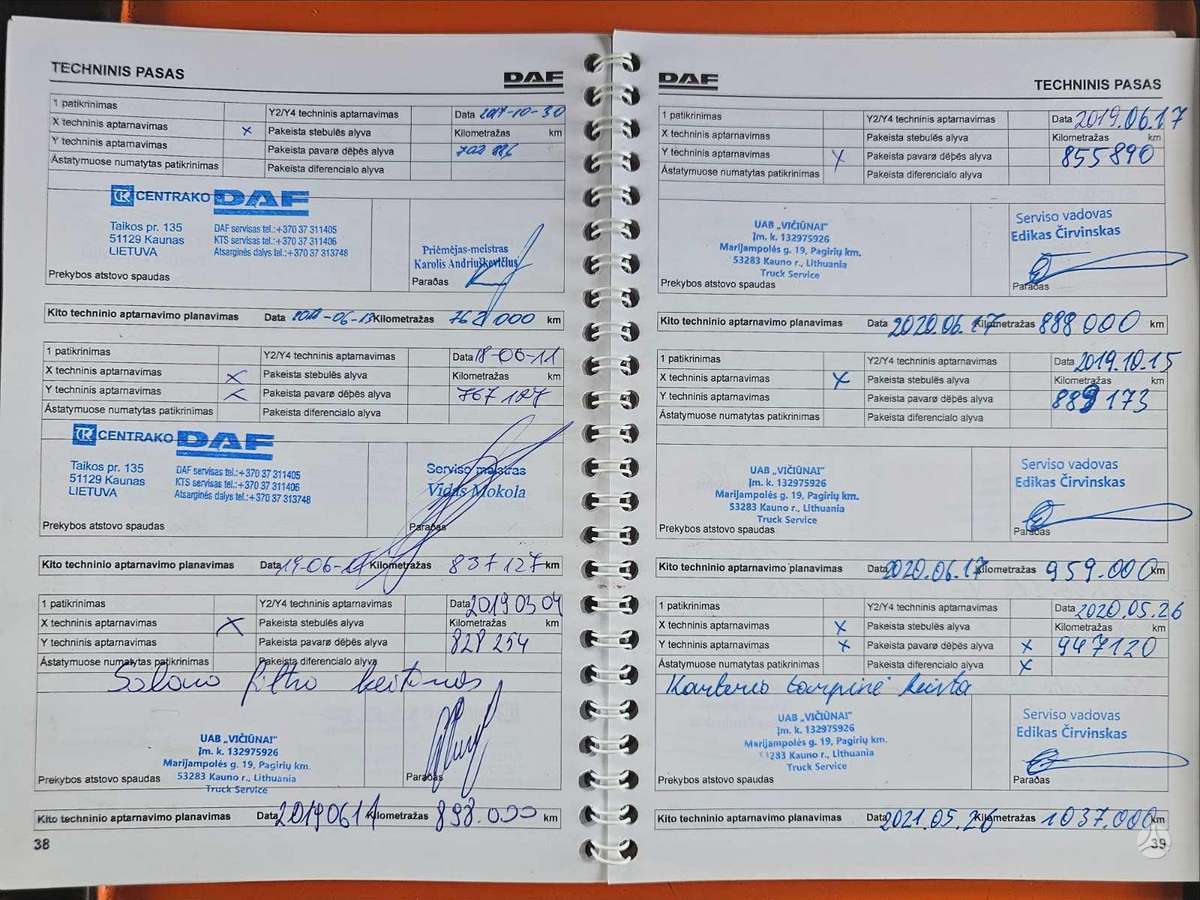 TECHNINIS PASAS
DAF
1 patikrinimas Y2/Y4 techninis aptarnavimas Data 2017-10-30
X techninis aptarnavimas x Pakeista stebulės alyva Kilometražas km
Y techninis aptarnavimas Pakeista pavarø dëþës alyva 702 886
Ástatymuose numatytas patikrinimas Pakeista diferencialo alyva
CENTRAKO DAF
Taikos pr. 135 DAF servisas tel.:+370 37 311405
51129 Kaunas KTS servisas tel.:+370 37 311406
LIETUVA Atsarginės dalys tel.:+370 37 313748
Priėmėjas-meistras
Karolis Andriuškevičius
Prekybos atstovo spaudas Paraðas
Kito techninio aptarnavimo planavimas Data Kilometražas 762 000 km
1 patikrinimas Y2/Y4 techninis aptarnavimas Data 18-06-11
X techninis aptarnavimas x Pakeista stebulės alyva Kilometražas km
Y techninis aptarnavimas x Pakeista pavarø dëþës alyva 767 127
Ástatymuose numatytas patikrinimas Pakeista diferencialo alyva
CENTRAKO DAF
Taikos pr. 135 DAF servisas tel.:+370 37 311405
51129 Kaunas KTS servisas tel.:+370 37 311406
LIETUVA Atsarginės dalys tel.:+370 37 313748
Serviso meistras
Vidas Mokola
Prekybos atstovo spaudas Paraðas
Kito techninio aptarnavimo planavimas Data Kilometražas 837127 km
1 patikrinimas Y2/Y4 techninis aptarnavimas Data 2019 05 04
X techninis aptarnavimas x Pakeista stebulės alyva Kilometražas km
Y techninis aptarnavimas Pakeista pavarø dëþës alyva 828 254
Ástatymuose numatytas patikrinimas Pakeista diferencialo alyva
Salono filtro keitimas
UAB „VIČIŪNAI"
Įm. k. 132975926
Marijampolės g. 19, Pagirių km.
53283 Kauno r., Lithuania
Truck Service
Prekybos atstovo spaudas Paraðas
Kito techninio aptarnavimo planavimas Data Kilometražas 898.000 km
38
DAF
TECHNINIS PASAS
1 patikrinimas Y2/Y4 techninis aptarnavimas Data 2019.06.17
X techninis aptarnavimas Pakeista stebulės alyva Kilometražas km
Y techninis aptarnavimas x Pakeista pavarø dëþës alyva 855890
Ástatymuose numatytas patikrinimas Pakeista diferencialo alyva
UAB „VIČIŪNAI"
Įm. k. 132975926
Marijampolės g. 19, Pagirių km.
53283 Kauno r., Lithuania
Truck Service
Serviso vadovas
Edikas Čirvinskas
Prekybos atstovo spaudas Paraðas
Kito techninio aptarnavimo planavimas Data 2020.06.17 Kilometražas 888 000 km
1 patikrinimas Y2/Y4 techninis aptarnavimas Data 2019.10.15
X techninis aptarnavimas x Pakeista stebulės alyva Kilometražas km
Y techninis aptarnavimas Pakeista pavarø dëþës alyva 889173
Ástatymuose numatytas patikrinimas Pakeista diferencialo alyva
UAB „VIČIŪNAI"
Įm. k. 132975926
Marijampolės g. 19, Pagirių km.
53283 Kauno r., Lithuania
Truck Service
Serviso vadovas
Edikas Čirvinskas
Prekybos atstovo spaudas Paraðas
Kito techninio aptarnavimo planavimas Data 2020.06.17 Kilometražas 959.000 km
1 patikrinimas Y2/Y4 techninis aptarnavimas Data 2020.05.26
X techninis aptarnavimas x Pakeista stebulės alyva Kilometražas km
Y techninis aptarnavimas x Pakeista pavarø dëþës alyva x 947120
Ástatymuose numatytas patikrinimas Pakeista diferencialo alyva x
Karterio tarpinė keista
UAB „VIČIŪNAI"
Įm. k. 132975926
Marijampolės g. 19, Pagirių km.
53283 Kauno r., Lithuania
Truck Service
Serviso vadovas
Edikas Čirvinskas
Prekybos atstovo spaudas Paraðas
Kito techninio aptarnavimo planavimas Data 2021.05.26 Kilometražas 1037.000 km
39